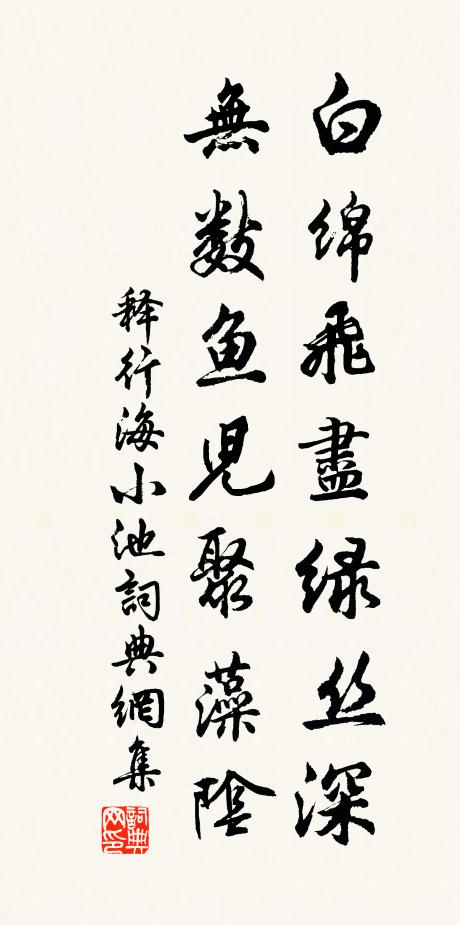 白绵飛盡绿丝深
無数鱼児聚藻陰
释行海小池詞典網集
詞典网印